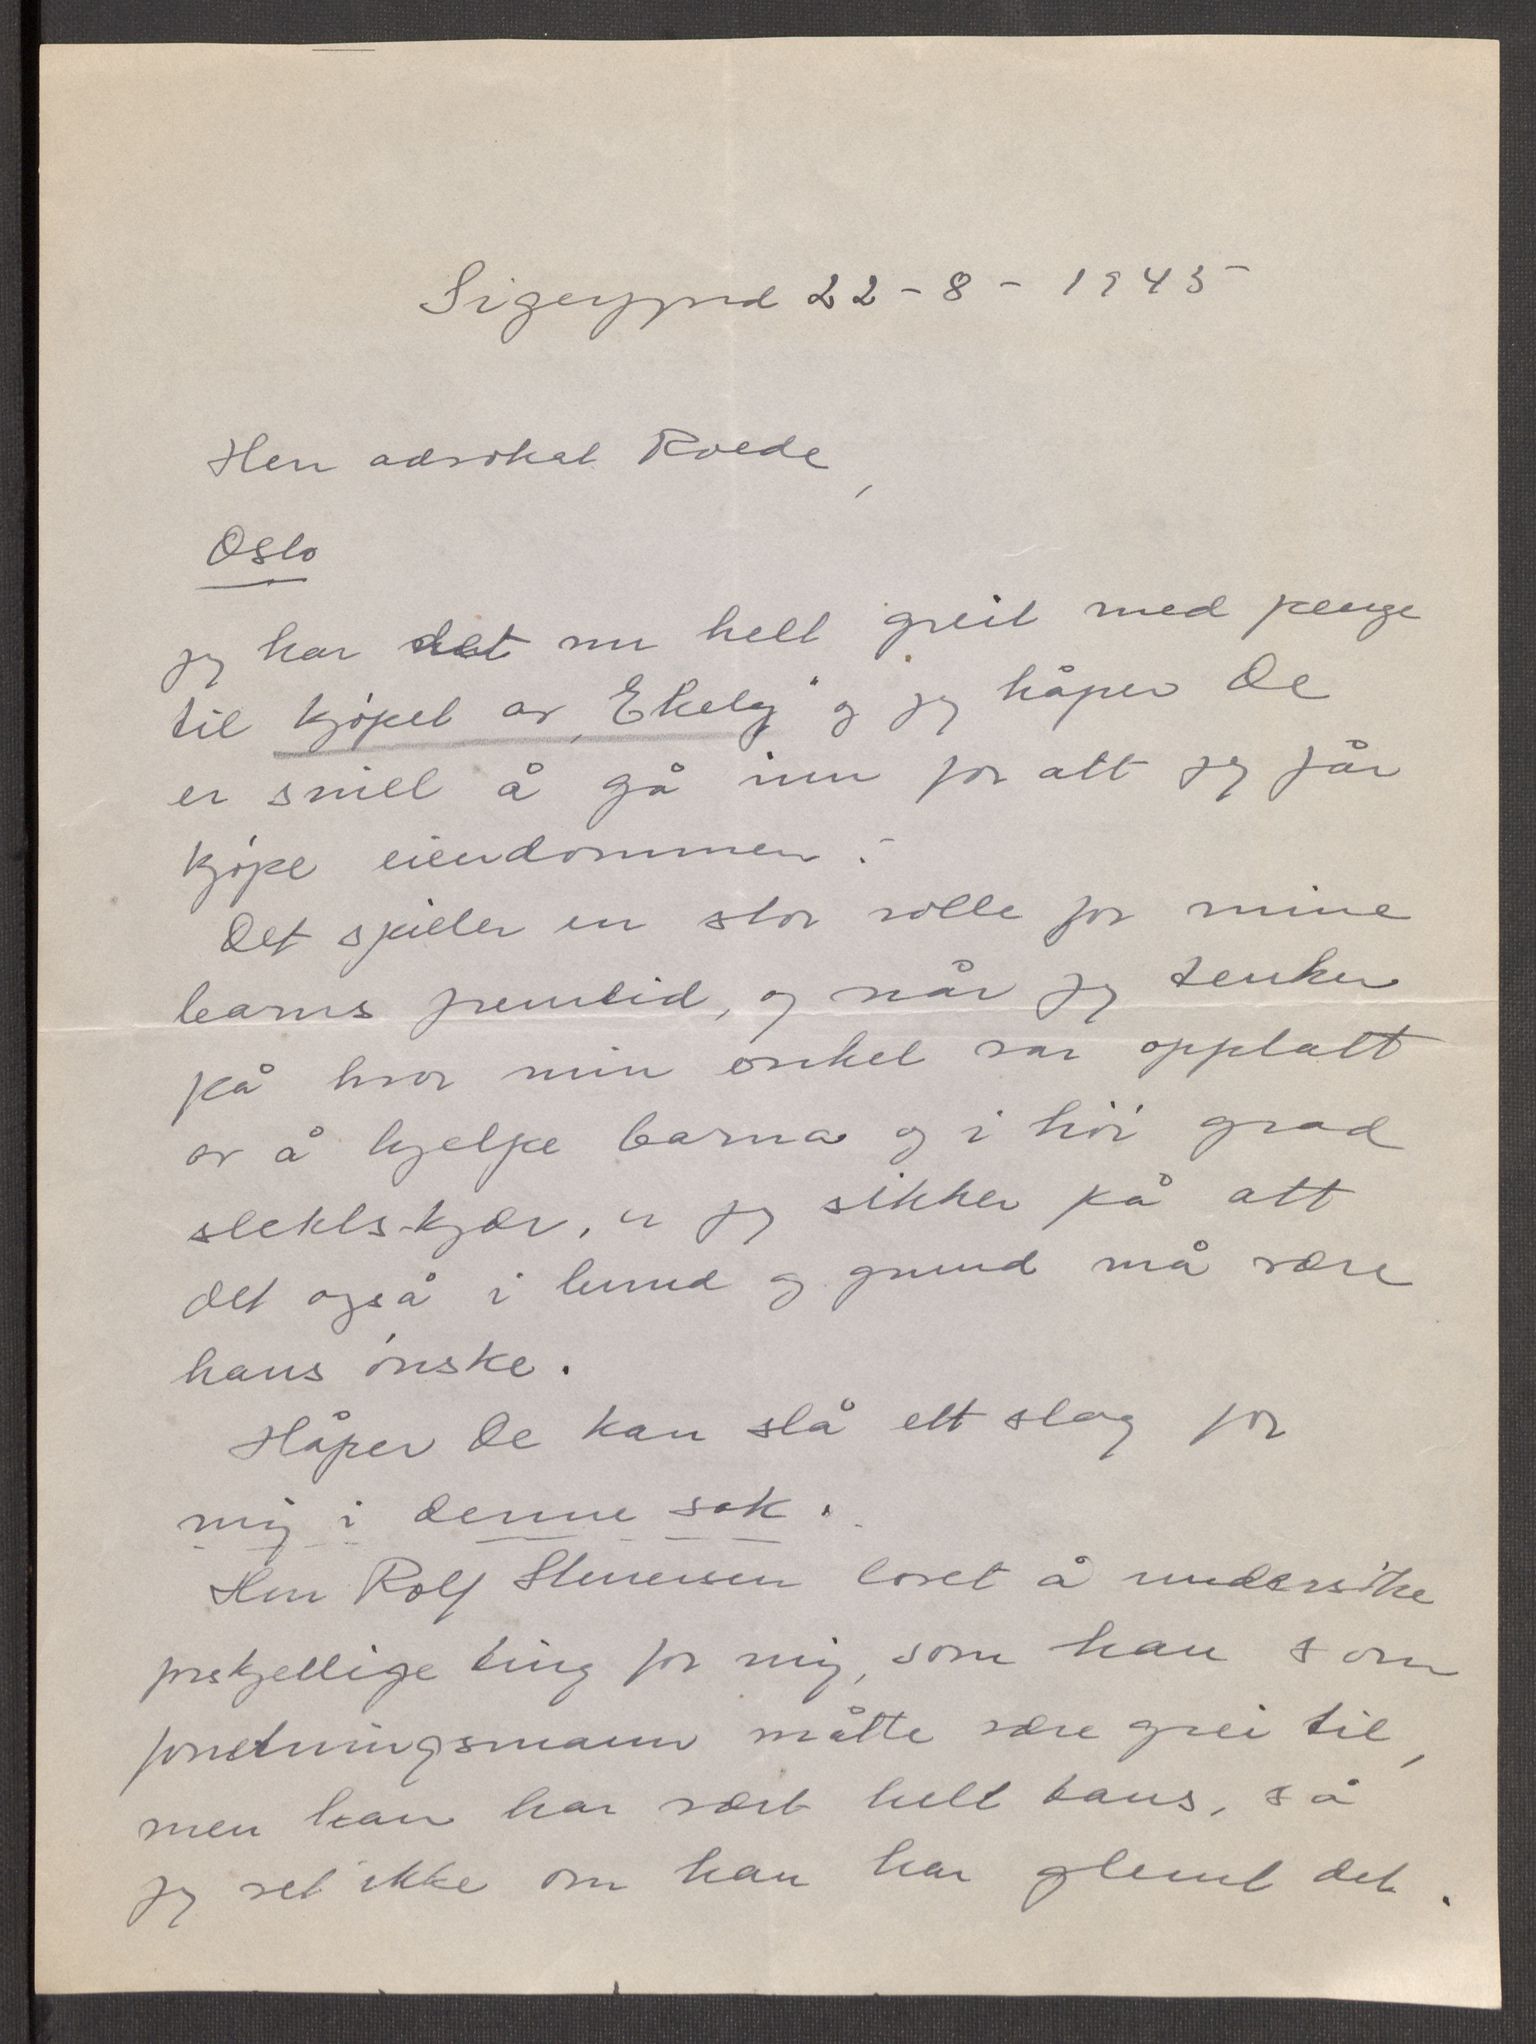 Sigerfjord 22-8-1945
Herr advokat Roede,
Oslo
Jeg har det nu helt greit med penge
til kjøpet av „Ekely" og jeg håper De
er snill å gå inn for att jeg får
kjøpe eiendommen.-
Det spiller en stor rolle for mine
barns fremtid, og når jeg tenker
på hvor min onkel var opptatt
av å hjelpe barna og i høi grad
slektskjær, er jeg sikker på att
det også i bund og grund må være
hans ønske.
Håper De kan slå ett slag for
mig i denne sak.
Herr Rolf Stenersen lovet å undersøke
forskjellige ting for mig, som han som
forretningsmann måtte være grei til,
men han har vært helt taus, så
jeg vet ikke om han har glemt det.